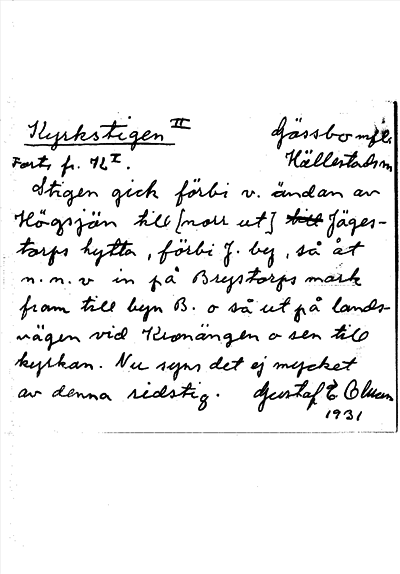 Kyrkstigen II Gässbo mfl.
Forts fr. K I. Hällestads sn
Stigen gick förbi v. ändan av
Högsjön till [norr ut] till Jäges-
torps hytta, förbi J. by, så åt
n.n.v in på Brystorps mark
fram till byn B. o så ut på lands-
vägen vid Kronängen o sen till
kyrkan. Nu syns det ej mycket
av denna ridstig. Gustaf E Olsson
1931